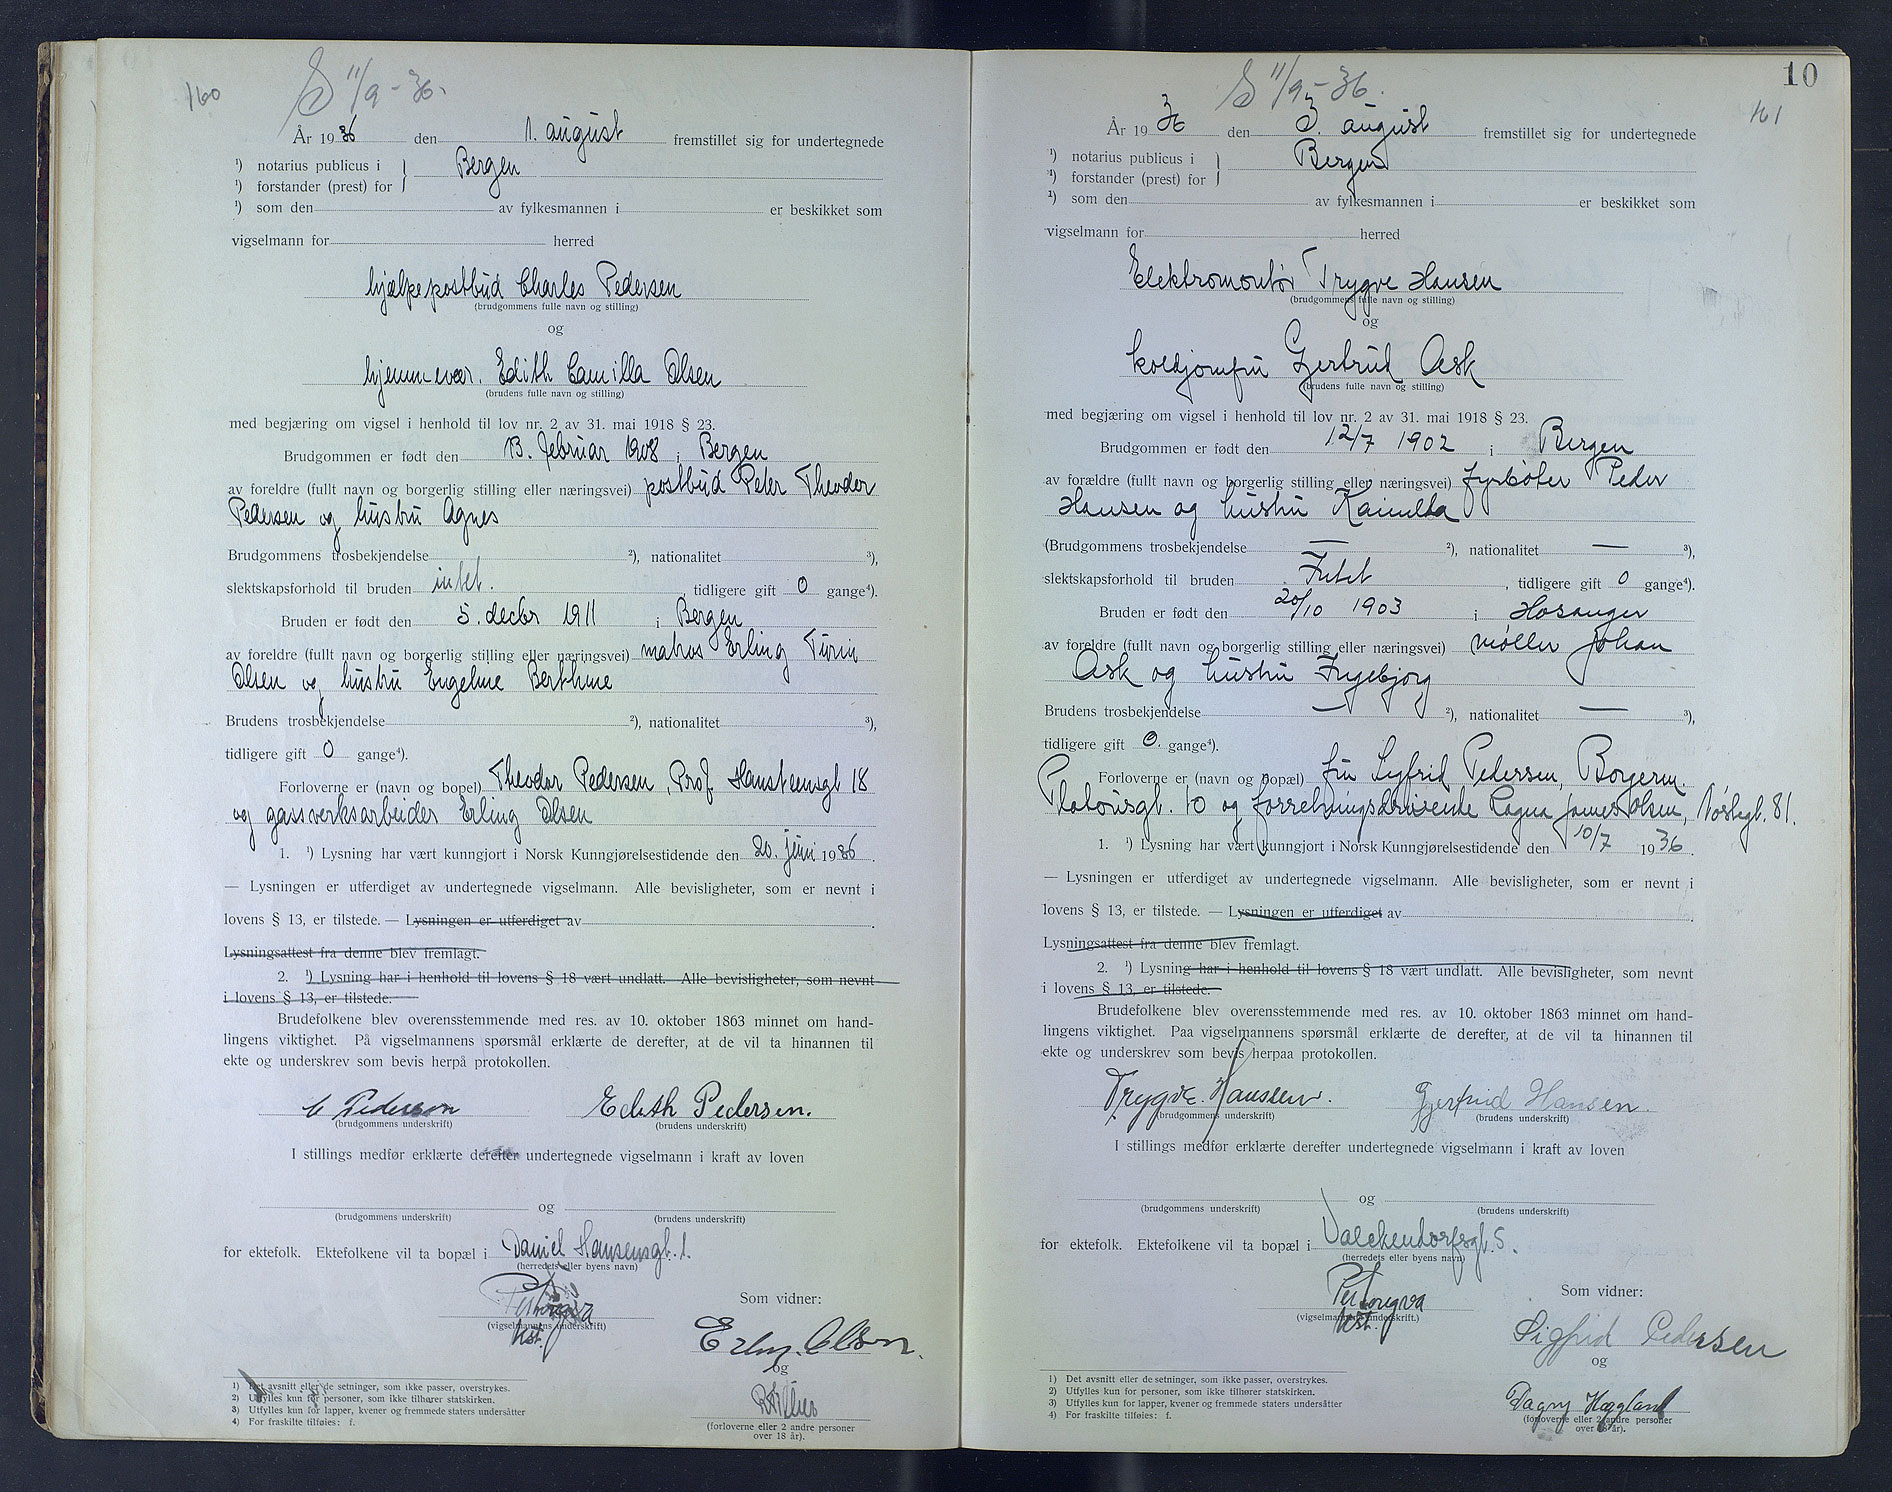 160
S 11/9 - 36.
År 19 36 den 1. august fremstillet sig for undertegnede
¹) notarius publicus i Bergen
¹) forstander (prest) for
¹) som den av fylkesmannen i er beskikket som
vigselmann for herred
hjælpepostbud Charles Pedersen
(brudgommens fulle navn og stilling)
og
hjemmevær. Edith Camilla Olsen
(brudens fulle navn og stilling)
med begjæring om vigsel i henhold til lov nr. 2 av 31. mai 1918 § 23.
Brudgommen er født den 13. februar 1908 i Bergen
av foreldre (fullt navn og borgerlig stilling eller næringsvei) postbud Peter Theodor
Pedersen og hustru Agnes
Brudgommens trosbekjendelse ²), nationalitet ³),
slektskapsforhold til bruden intet. tidligere gift 0 gange⁴).
Bruden er født den 5. decbr 1911 i Bergen
av foreldre (fullt navn og borgerlig stilling eller næringsvei) matros Erling Turin
Olsen og hustru Engeline Berthine
Brudens trosbekjendelse ²), nationalitet ³),
tidligere gift 0 gange⁴).
Forloverne er (navn og bopel) Theodor Pedersen, Prof. Hansteensgt 18
og gassverksarbeider Erling Olsen
1. ¹) Lysning har vært kunngjort i Norsk Kunngjørelsestidende den 20. juni 1936.
— Lysningen er utferdiget av undertegnede vigselmann. Alle bevisligheter, som er nevnt i
lovens § 13, er tilstede. — Lysningen er utferdiget av
Lysningsattest fra denne blev fremlagt.
2. ¹) Lysning har i henhold til lovens § 18 vært undlatt. Alle bevisligheter, som nevnt
i lovens § 13, er tilstede.
Brudefolkene blev overensstemmende med res. av 10. oktober 1863 minnet om hand-
lingens viktighet. På vigselmannens spørsmål erklærte de derefter, at de vil ta hinannen til
ekte og underskrev som bevis herpå protokollen.
C Pederson Edith Pedersen.
(brudgommens underskrift) (brudens underskrift)
I stillings medfør erklærte derefter undertegnede vigselmann i kraft av loven
og
(brudgommens underskrift) (brudens underskrift)
for ektefolk. Ektefolkene vil ta bopæl i Daniel Hansensgt. 1.
(herredets eller byens navn)
Som vidner:
(vigselmannens underskrift)
kst.
Erling Olsen.
og
(forloverne eller 2 andre personer
over 18 år).
1) Det avsnitt eller de setninger, som ikke passer, overstrykes.
2) Utfylles kun for personer, som ikke tilhører statskirken.
3) Utfylles kun for lapper, kvener og fremmede staters undersåtter
4) For fraskilte tilføies: f.
10
161
S 11/9 - 36.
År 19 36 den 3. august fremstillet sig for undertegnede
¹) notarius publicus i Bergen
¹) forstander (prest) for
¹) som den av fylkesmannen i er beskikket som
vigselmann for herred
Elektromontør Trygve Hansen
(brudgommens fulle navn og stilling)
og
koldjomfru Gjertrud Ask
(brudens fulle navn og stilling)
med begjæring om vigsel i henhold til lov nr. 2 av 31. mai 1918 § 23.
Brudgommen er født den 12/7 1902 i Bergen
av forældre (fullt navn og borgerlig stilling eller næringsvei) fyrbøter Peder
Hansen og hustru Kamilla
(Brudgommens trosbekjendelse — ²), nationalitet — ³),
slektskapsforhold til bruden Intet, tidligere gift 0 gange⁴).
Bruden er født den 20/10 1903 i Hosanger
av foreldre (fullt navn og borgerlig stilling eller næringsvei) møller Johan
Ask og hustru Ingebjørg
Brudens trosbekjendelse — ²), nationalitet — ³),
tidligere gift 0. gange⁴).
Forloverne er (navn og bopæl) fru Sigfrid Pedersen, Borgerm.
Platousgt. 10 og forretningsdrivende Ragna James Olsen, Nøstegt. 81.
1. ¹) Lysning har vært kunngjort i Norsk Kunngjørelsestidende den 10/7 1936.
— Lysningen er utferdiget av undertegnede vigselmann. Alle bevisligheter, som er nevnt i
lovens § 13, er tilstede. — Lysningen er utferdiget av
Lysningsattest fra denne blev fremlagt.
2. ¹) Lysning har i henhold til lovens § 18 vært undlatt. Alle bevisligheter, som nevnt
i lovens § 13, er tilstede.
Brudefolkene blev overensstemmende med res. av 10. oktober 1863 minnet om hand-
lingens viktighet. Paa vigselmannens spørsmål erklærte de derefter, at de vil ta hinannen til
ekte og underskrev som bevis herpaa protokollen.
Trygve. Hanssen. Gjertrud Hansen.
(brudgommens underskrift) (brudens underskrift)
I stillings medfør erklærte derefter undertegnede vigselmann i kraft av loven
og
(brudgommens underskrift) (brudens underskrift)
for ektefolk. Ektefolkene vil ta bopæl i Valckendorfsgt. 5.
(herredets eller byens navn)
Som vidner:
(vigselmannens underskrift)
kst.
Sigfrid Pedersen
og
Dagny Hægland
(forloverne eller 2 andre personer
over 18 år).
1) Det avsnitt eller de setninger, som ikke passer, overstrykes.
2) Utfylles kun for personer, som ikke tilhører statskirken.
3) Utfylles kun for lapper, kvener og fremmede staters undersåtter
4) For fraskilte tilføies: f.